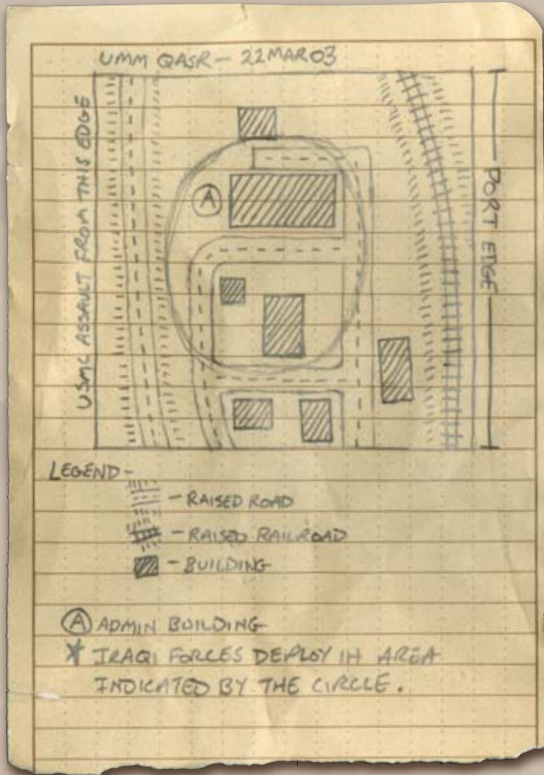 UMM QASR - 22MAR03
USMC ASSAULT FROM THIS EDGE
PORT EDGE
A
LEGEND -
- RAISED ROAD
- RAISED RAILROAD
- BUILDING
A ADMIN BUILDING
* IRAQI FORCES DEPLOY IN AREA
INDICATED BY THE CIRCLE.